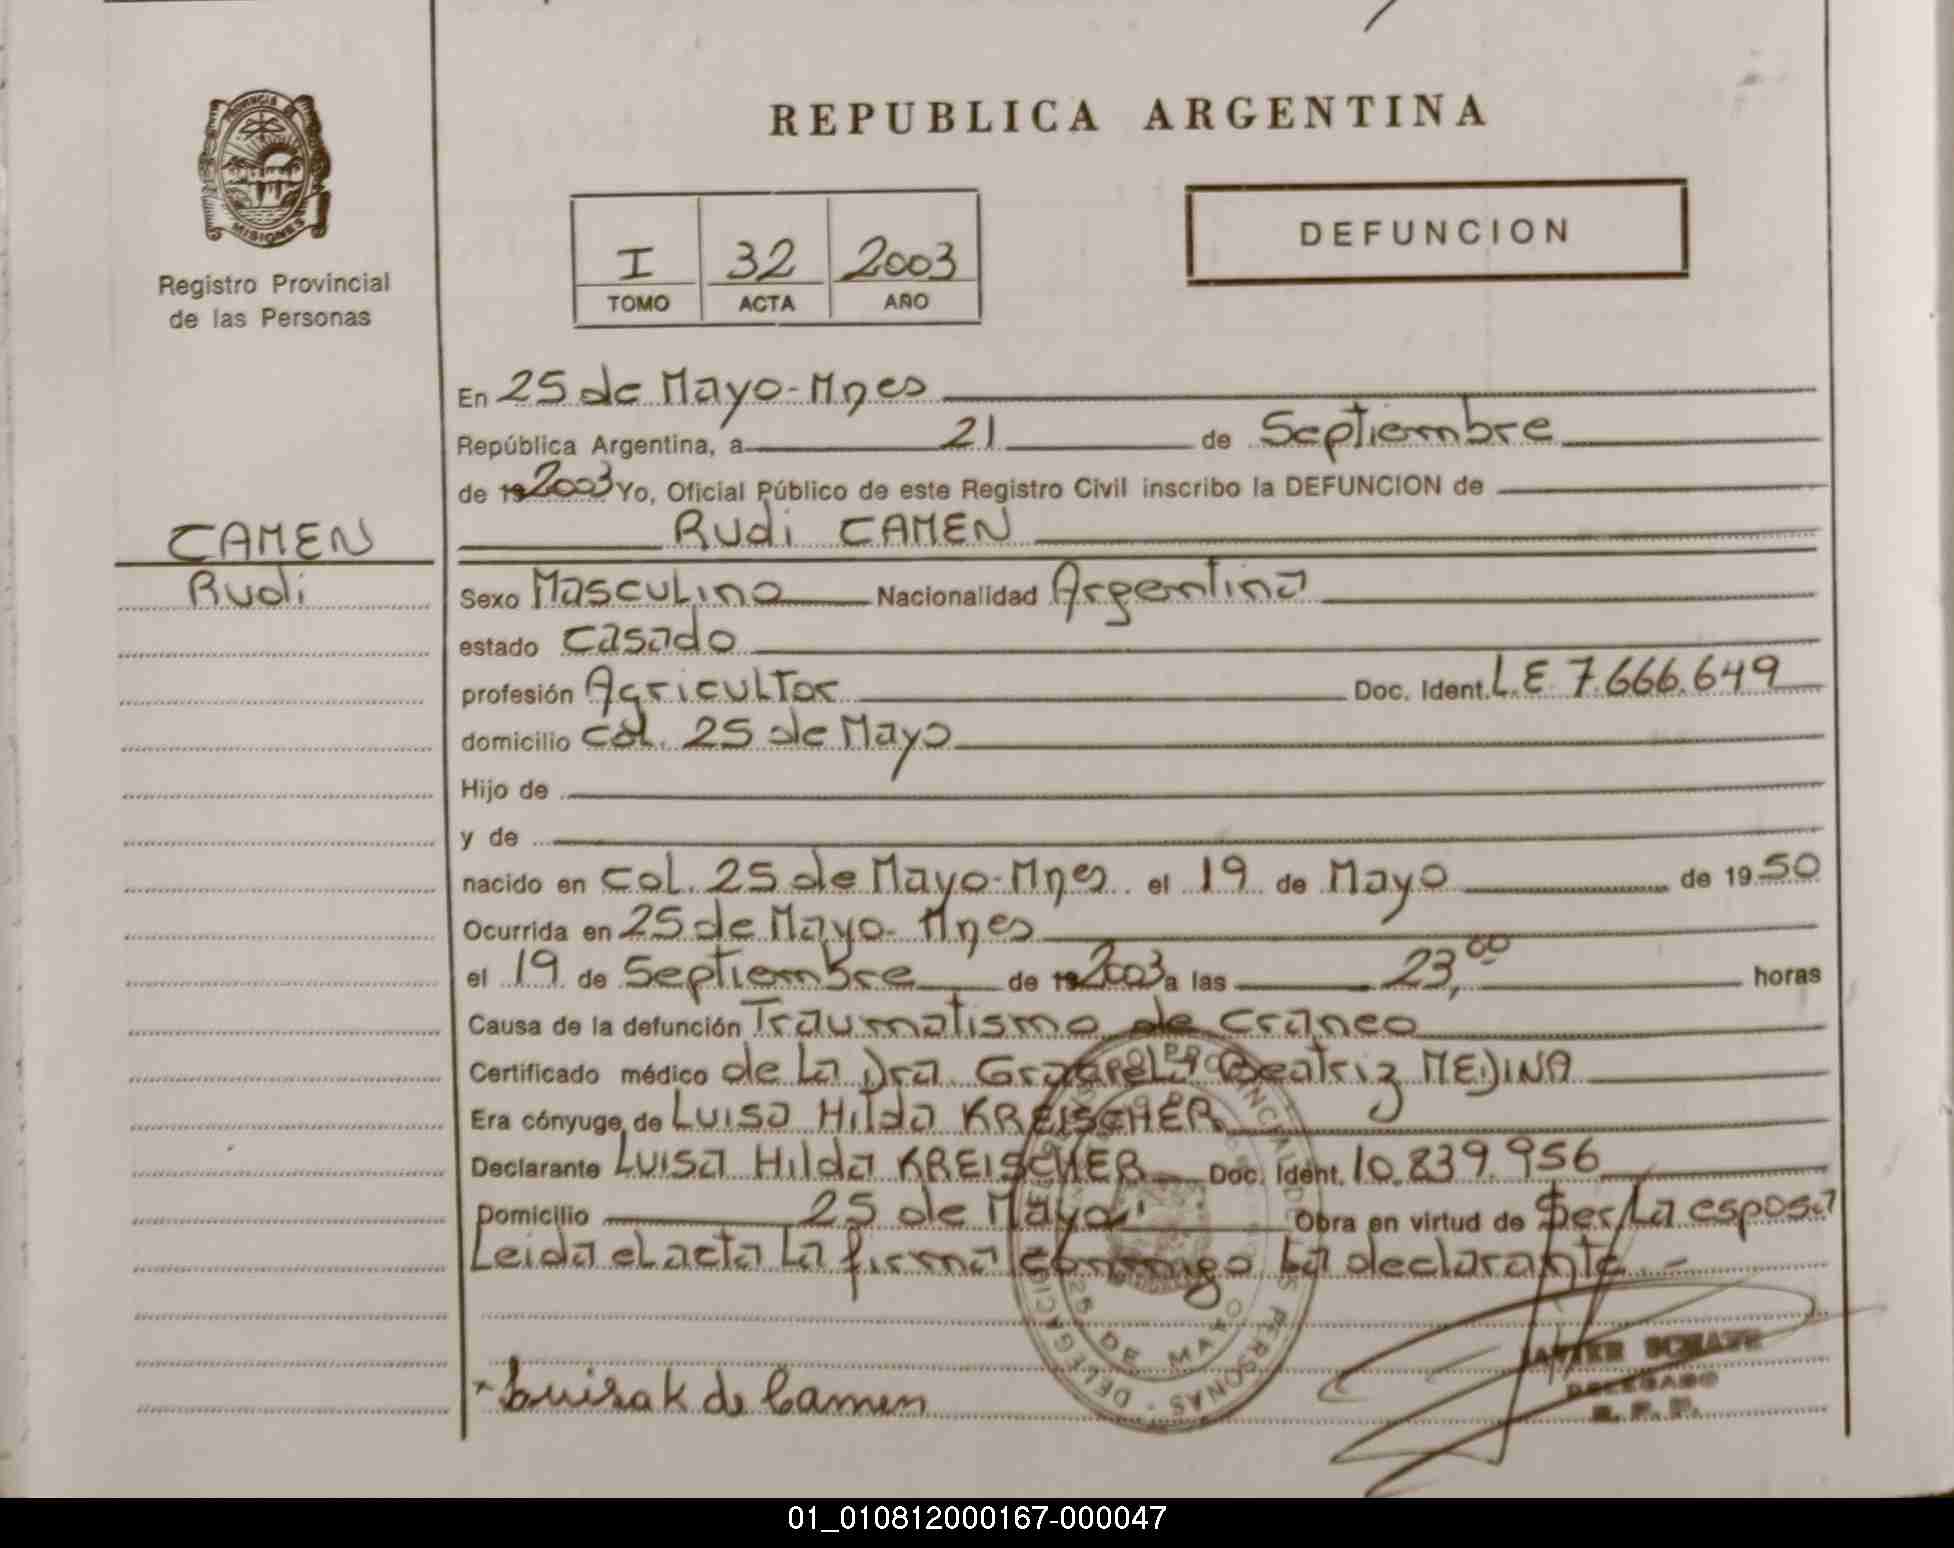 REPUBLICA ARGENTINA
PROVINCIA DE
MISIONES
Registro Provincial
de las Personas
I 32 2003
TOMO ACTA AÑO
DEFUNCION
CAMEN
Rudi
En 25 de Mayo-Mnes
República Argentina, a 21 de Septiembre
de 19 2003 Yo, Oficial Público de este Registro Civil inscribo la DEFUNCION de
Rudi CAMEN
Sexo Masculino Nacionalidad Argentina
estado casado
profesión Agricultor Doc. Ident. L.E 7.666.649
domicilio Col. 25 de Mayo
Hijo de
y de
nacido en Col. 25 de Mayo-Mnes el 19 de Mayo de 1950
Ocurrida en 25 de Mayo- Mnes
el 19 de Septiembre de 19 2003 a las 23,00 horas
Causa de la defunción Traumatismo de craneo
Certificado médico de La Dra. Graciela Beatriz MEDINA
Era cónyuge de Luisa Hilda KREISCHER
Declarante Luisa Hilda KREISCHER Doc. Ident. 10.839.956
Domicilio 25 de Mayo Obra en virtud de Ser La esposa
Leida el acta La firma conmigo La declarante.-
DELEGACION 25 DE MAYO
Luisa K de Camen
DELEGADO
R. P. P.
01_010812000167-000047